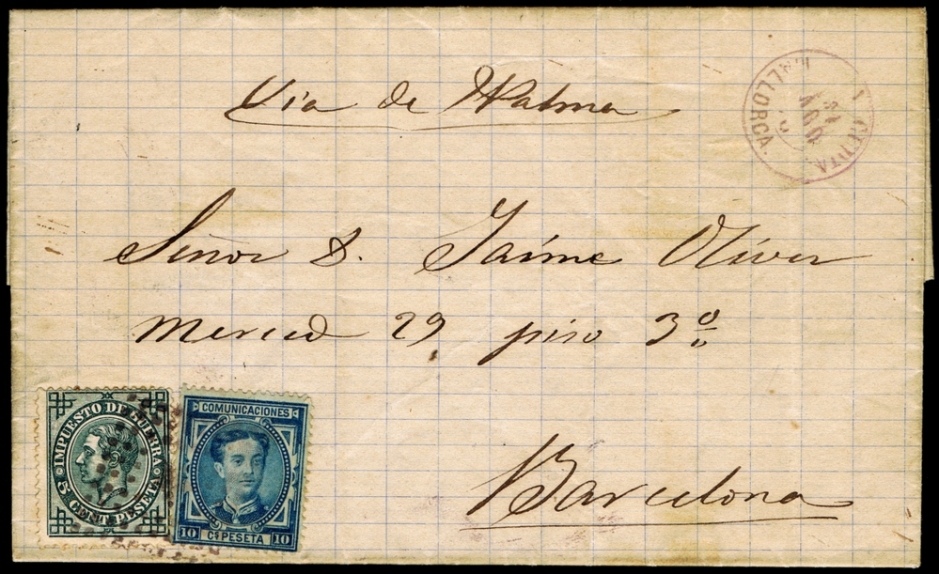 Via de Palma
MALLORCA.
Señor D. Jaime Oliver
Merced 29 piso 3º
Barcelona
IMPUESTO DE GUERRA
5 CENT. PESETA
COMUNICACIONES
10 Cs PESETA 10